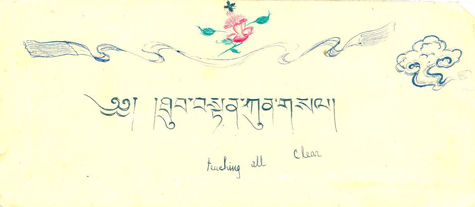 ༄༅། །ཐུབ་བསྟན་ཀུན་གསལ།
teaching all clear